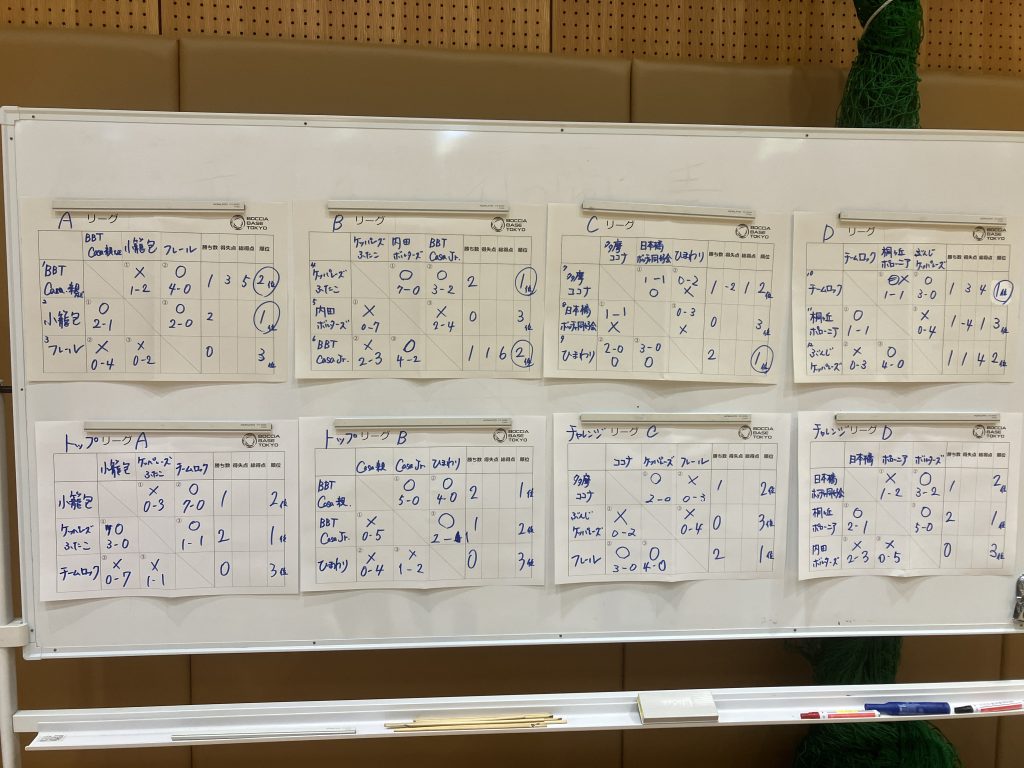 A リーグ
BOCCIA BASE TOKYO
BBT Casa親 小籠包 フレール 勝ち数 得失点 総得点 順位
1 BBT Casa.親 ① × 1-2 ② ○ 4-0 1 3 5 2位
2 小籠包 ① ○ 2-1 ③ ○ 2-0 2 1位
3 フレール ② × 0-4 ③ × 0-2 0 3位
B リーグ
BOCCIA BASE TOKYO
ケッパレーズふたこ 内田ボルターズ BBT Casa Jr. 勝ち数 得失点 総得点 順位
4 ケッパレーズふたこ ① ○ 7-0 ② ○ 3-2 2 1位
5 内田ボルターズ ① × 0-7 ③ × 2-4 0 3位
6 BBT Casa Jr. ② × 2-3 ③ ○ 4-2 1 1 6 2位
C リーグ
BOCCIA BASE TOKYO
多摩ココナ 日本橋ボッチャ同好会 ひまわり 勝ち数 得失点 総得点 順位
7 多摩ココナ 1-1 ○ 0-2 × 1 -2 1 2位
8 日本橋ボッチャ同好会 1-1 × 0-3 × 0 3位
9 ひまわり 2-0 ○ 3-0 ○ 2 1位
D リーグ
BOCCIA BASE TOKYO
チームロック 桐ヶ丘ボローニア ぶんじケッパレーズ 勝ち数 得失点 総得点 順位
10 チームロック × 1-1 ② ○ 3-0 1 3 4 1位
11 桐ヶ丘ボローニア ① ○ 1-1 ③ × 0-4 1 -4 1 3位
12 ぶんじケッパレーズ ② × 0-3 ③ ○ 4-0 1 1 4 2位
トップリーグ A
BOCCIA BASE TOKYO
小籠包 ケッパレーズふたこ チームロック 勝ち数 得失点 総得点 順位
小籠包 ① × 0-3 ② ○ 7-0 1 2位
ケッパレーズふたこ ○ 3-0 ③ ○ 1-1 2 1位
チームロック ② × 0-7 ③ × 1-1 0 3位
トップリーグ B
BOCCIA BASE TOKYO
Casa親 Casa Jr. ひまわり 勝ち数 得失点 総得点 順位
BBT Casa親. ① ○ 5-0 ② ○ 4-0 2 1位
BBT Casa Jr. ① × 0-5 ③ ○ 2-1 1 2位
ひまわり ② × 0-4 ③ × 1-2 0 3位
チャレンジリーグ C
BOCCIA BASE TOKYO
ココナ ケッパレーズ フレール 勝ち数 得失点 総得点 順位
多摩ココナ ① ○ 2-0 ② × 0-3 1 2位
ぶんじケッパレーズ ① × 0-2 ③ × 0-4 0 3位
フレール ② ○ 3-0 ③ ○ 4-0 2 1位
チャレンジリーグ D
BOCCIA BASE TOKYO
日本橋 ボローニア ボルターズ 勝ち数 得失点 総得点 順位
日本橋ボッチャ同好会 ① × 1-2 ② ○ 3-2 1 2位
桐ヶ丘ボローニア ① ○ 2-1 ③ ○ 5-0 2 1位
内田ボルターズ ② × 2-3 ③ × 0-5 0 3位